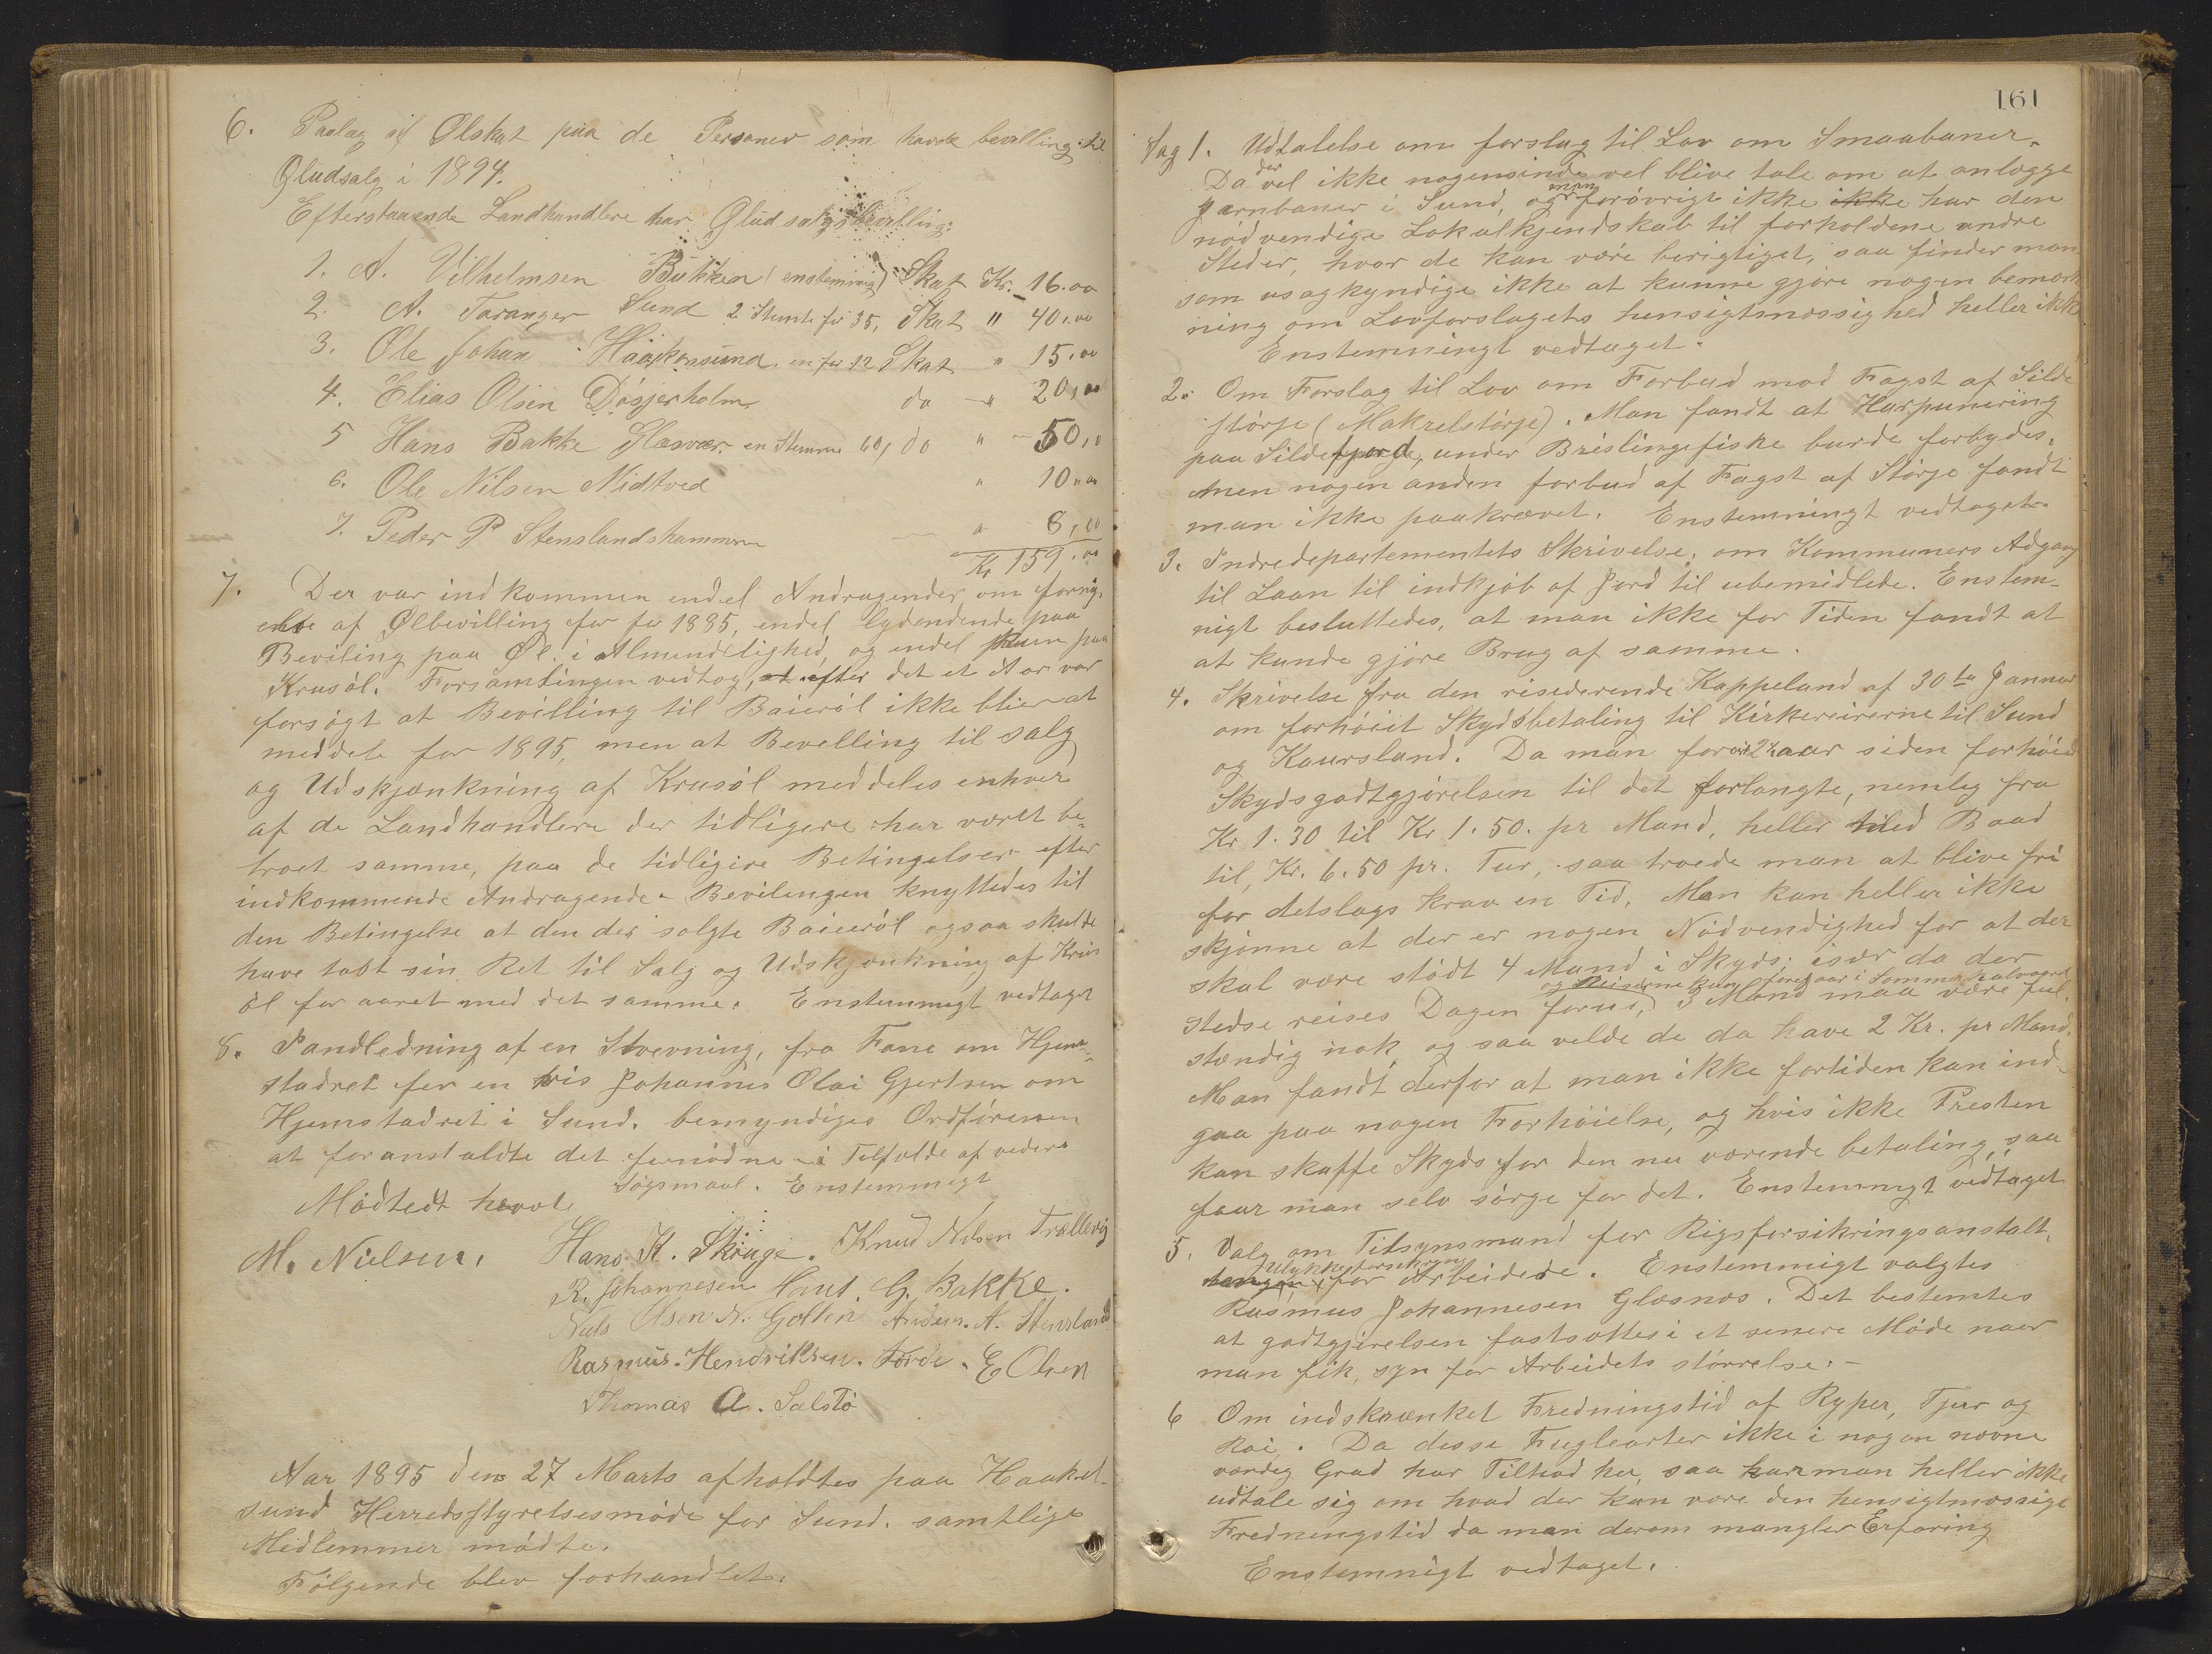 6. Paalæg af Ølskat paa de Personer som havde bevilling til
Øludsalg i 1894.
Efterstaaende Landhandlere har Øludsalgsbevilling:
1. A. Vilhelmsen Bukken (enstemmig) Skat Kr. 16.00
2. A. Taranger Sund 2 Stemte for 35, Skat " 40.00
3. Ole Johan Haakonsund en for 12 Skat " 15.00
4. Elias Olsen Døsjerholm do " 20,00
5 Hans Bakke Glesvær en Stemme 60, do " 50,0
6. Ole Nilsen Nidtved " 10,00
7. Peder P Stenslandshammeren " 8,00
Kr 159.00
7. Der var indkommen endel Andragender om forny-
else af Ølbevilling for for 1885, endel lydendende paa
Beviling paa Øl i Almindelighed, og endel kun paa
Krusøl. Forsamlingen vedtog, at efter det et Aar var
forsøgt at Bevilling til Baierøl ikke blir at
meddele for 1895, men at Bevelling til salg
og Udskjænkning af Krusøl meddeles enhver
af de Landhandlere der tidligere har været be-
troet samme, paa de tidligere Betingelser efter
indkommende Andragende. Bevilingen knyttedes til
den Betingelse at den der solgte Baierøl ogsaa skulde
have tabt sin Ret til Salg og Udskjænkning af Krus
øl for aaret med det samme. Enstemmigt vedtaget
8. Pandledning af en Stevning, fra Fane om Hjem-
stadret for en vis Johannes Olai Gjertsen om
Hjemstadret i Sund. bemyndiges Ordføreren
at foranstaldte det fornødne i Tilfælde af videre
Søgsmaal. Enstemmigt
Mødtedt hævet
M. Nielsen. Hans K. Skøuge. Knud Nilsen Trællevig
R. Johannesen Haut. G. Bakke.
Niels Olsen N. Golten Anders. A. Stensland
Rasmus. Hendriksen. Førde. E Olsen
Thomas A. Sælstø
Aar 1895 den 27 Marts afholdtes paa Haakel-
sund Herredsstyrelsesmøde for Sund. samtlige
Medlemmer mødte.
Følgende blev forhandlet.
161
Sag 1. Udtalelse om forslag til Lov om Smaabaner.
Da der vel ikke nogensinde vel blive tale om at anlægge
Jærnbaner i Sund, og man forøvrigt ikke ikke har den
nødvendige Lokalkjendskab til forholdene andre
Steder, hvor de kan være berigtiget, saa finder man
som usagkyndige ikke at kunne gjøre nogen bemærk
ning om Lovforslagets hensigtsmæssighed heller ikke
Enstemningt vedtaget.
2. Om Forslag til Lov om Forbud mod Fagst af Silde
størje (Makrelstørje). Man fandt at Harpunering
paa Sildefjord, under Brislingefiske burde forbydes.
men nogen anden forbud af Fagst af Størje fandt
man ikke paakrævet. Enstemningt vedtaget.
3. Indredepartementets Skrivelse, om Kommuners Adgang
til Laan til indkjøb af Jord til ubemidlede. Enstem-
nigt besluttedes, at man ikke for Tiden fandt at
at kunde gjøre Brug af samme.
4. Skrivelse fra den risederende Kappeland af 30te Januar
om forhøiet Skydsbetaling til Kirkereiserne til Sund
og Kaursland. Da man for 2 aar siden forhøied
Skydsgodtgjørelsen til det forlangte, nemlig fra
Kr 1.30 til Kr 1.50. pr Mand, heller tiled Baad
til, Kr. 6.50 pr. Tur, saa troede man at blive fri
for detslags krav en Tid. Man kan heller ikke
skjønne at der er nogen Nødvendighed for at der
skal være stødt 4 Mand i Skyds; især da der
og Reiserne kun foregaar i Sommerhalvaaret
stedse reises Dagen forud, 3 Mand maa være ful-
stændig nok, og saa velde de da have 2 Kr. pr Mand.
Man fandt derfor at man ikke fortiden kan ind-
gaa paa nogen Forhøielse, og hvis ikke Presten
kan skaffe Skyds for den nu værende betaling, saa
faar man selv sørge for det. Enstemmigt vedtaget
5. Valg om Tilsynsmand for Rigsforsikringsanstalt.
for Arbeidere. Enstemmigt valgtes
Rasmus Johannesen Glæsnæs. Det bestemtes
at godtgjørelsen fastsættes i et senere Møde naar
man fik, syn for Arbeidets størrelse.-
6 Om indskrænket Fredningstid af Ryper, Tjur og
Røi. Da disse Fuglearter ikke i nogen nævne
værdig Grad har Tilhod her, saa kan man heller ikke
udtale sig om hvad der kan være den hensigtmæssige
Fredningstid da man derom mangler Erfaring
Enstemnigt vedtaget.